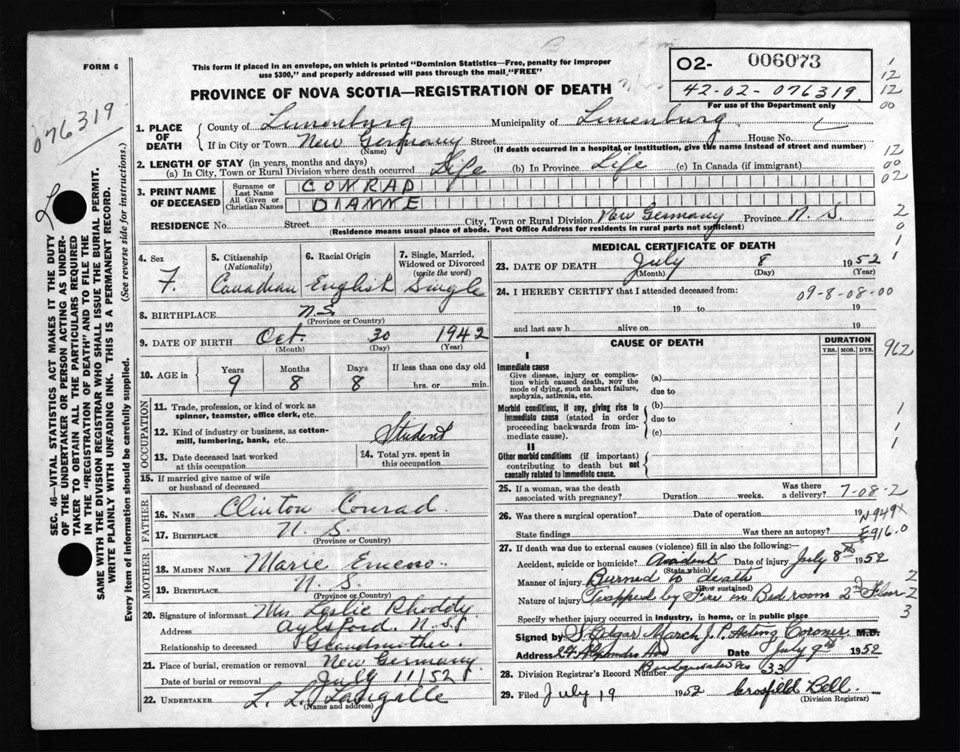 FORM 6
This form if placed in an envelope, on which is printed "Dominion Statistics—Free, penalty for improper
use $300," and properly addressed will pass through the mail "FREE"
PROVINCE OF NOVA SCOTIA—REGISTRATION OF DEATH
02- 006073
42-02-076319
For use of the Department only
076319
1. PLACE OF DEATH
County of Lunenburg Municipality of Lunenburg
If in City or Town New Germany Street House No.
(Name) (If death occurred in a hospital or institution, give the name instead of street and number)
2. LENGTH OF STAY (in years, months and days)
(a) In City, Town or Rural Division where death occurred Life (b) In Province Life (c) In Canada (if immigrant)
3. PRINT NAME OF DECEASED
Surname or Last Name CONRAD
All Given or Christian Names DIANNE
RESIDENCE No. Street City, Town or Rural Division New Germany Province N.S.
(Residence means usual place of abode. Post Office Address for residents in rural parts not sufficient)
SEC. 46—VITAL STATISTICS ACT MAKES IT THE DUTY
OF THE UNDERTAKER OR PERSON ACTING AS UNDER-
TAKER TO OBTAIN ALL THE PARTICULARS REQUIRED
IN THE "REGISTRATION OF DEATH" AND TO FILE THE
SAME WITH THE DIVISION REGISTRAR WHO SHALL ISSUE THE BURIAL PERMIT.
WRITE PLAINLY WITH UNFADING INK. THIS IS A PERMANENT RECORD.
Every item of information should be carefully supplied. (See reverse side for instructions.)
4. Sex F.
5. Citizenship (Nationality) Canadian
6. Racial Origin English
7. Single, Married, Widowed or Divorced (write the word) Single
8. BIRTHPLACE N.S.
(Province or Country)
9. DATE OF BIRTH Oct. 30 1942
(Month) (Day) (Year)
10. AGE in Years 9 Months 8 Days 8 If less than one day old hrs. or min.
OCCUPATION
11. Trade, profession, or kind of work as
spinner, teamster, office clerk, etc.
12. Kind of industry or business, as cotton-
mill, lumbering, bank, etc. Student
13. Date deceased last worked
at this occupation
14. Total yrs. spent in
this occupation
15. If married give name of wife
or husband of deceased
FATHER
16. NAME Clinton Conrad
17. BIRTHPLACE N.S.
(Province or Country)
MOTHER
18. MAIDEN NAME Marie
19. BIRTHPLACE N.S.
(Province or Country)
20. Signature of informant Mrs. Leslie Rhoddy
Address Aylsford, N.S.
Relationship to deceased Grandmother.
21. Place of burial, cremation or removal New Germany
Date of burial or removal July 11/52
22. UNDERTAKER L. L. Langille
(Name and address)
MEDICAL CERTIFICATE OF DEATH
23. DATE OF DEATH July 8 1952
(Month) (Day) (Year)
24. I HEREBY CERTIFY that I attended deceased from:
09-8-08-00
19 to 19
and last saw h alive on 19
CAUSE OF DEATH
DURATION
YRS. MOS. DYS.
I
Immediate cause
Give disease, injury or complica-
tion which caused death, NOT the
mode of dying, such as heart failure,
asphyxia, asthenia, etc.
(a)
due to
Morbid conditions, if any, giving rise to
immediate cause (stated in order
proceeding backwards from im-
mediate cause).
(b)
due to
(c)
II
Other morbid conditions (if important)
contributing to death but not
causally related to immediate cause.
25. If a woman, was the death
associated with pregnancy? Duration weeks. Was there
a delivery? 7-08-2
26. Was there a surgical operation? Date of operation 19 N949X
State findings Was there an autopsy? E916.0
27. If death was due to external causes (violence) fill in also the following:—
Accident, suicide or homicide? Accident Date of injury July 8th 1952
(State which)
Manner of injury Burned to death
(How sustained)
Nature of injury Trapped by Fire in Bedroom 2nd Floor
Specify whether injury occurred in industry, in home, or in public place
Signed by S Edgar March J.P. Acting Coroner M.D.
Address 24 Alexandra Ave Date July 9th 1952
Bridgewater NS
28. Division Registrar's Record Number 33
29. Filed July 19 1952 Crosfield Bell
(Division Registrar)
1
12
12
00
12
00
02
2
0
1
1
962
1
1
1
2
2
3